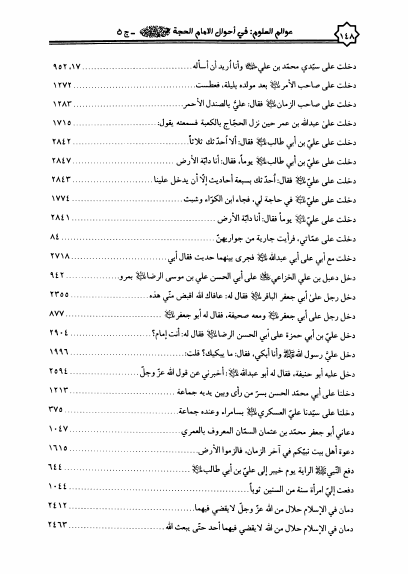 ١٤٨ عوالم العلوم: في أحوال الإمام الحجة ﷺ - ج ٥
دخلت على سيّدي محمّد بن علي وأنا أُريد أن أسأله ١٧، ٩٥٢
دخلت على صاحب الأمر بعد مولده بليلة، فعطست ١٢٧٢
دخلت على صاحب الزمان فقال: عليَّ بالصندل الأحمر ١٢٨٣
دخلت على عبدالله بن عمر حين نزل الحجّاج بالكعبة فسمعته يقول: ١٧١٥
دخلت على عليّ بن أبي طالب فقال: ألا أُحدّثك ثلاثاً ٢٨٤٢
دخلت على عليّ بن أبي طالب يوماً، فقال: أنا دابّة الأرض ٢٨٤٧
دخلت على عليّ فقال: أُحدّثك بسبعة أحاديث إلّا أن يدخل علينا ٢٨٤٣
دخلت على عليّ في حاجة لي، فجاء ابن الكوّاء وشبث ١٧٧٤
دخلت على عليّ يوماً فقال: أنا دابّة الأرض ٢٨٤١
دخلت على عمّاتي، فرأيت جارية من جواريهنّ ٨٤
دخلت مع أبي على أبي عبدالله فجرى بينهما حديث فقال أبي ٢٧١٨
دخل دعبل بن علي الخزاعي على أبي الحسن علي بن موسى الرضا بمرو ٩٤٢
دخل رجل على أبي جعفر الباقر فقال له: عافاك الله اقبض منّي هذه ٢٣٥٥
دخل رجل على أبي جعفر ومعه صحيفة، فقال له أبو جعفر ٨٧٧
دخل عليّ بن أبي حمزة على أبي الحسن الرضا فقال له: أنت إمام؟ ٢٩٠٤
دخل عليَّ رسول الله وأنا أبكي، فقال: ما يبكيك؟ قلت: ١٩٩٦
دخل عليه أبو حنيفة، فقال له أبو عبدالله: أخبرني عن قول الله عزّ وجلّ ٢٥٩٤
دخلنا على أبي محمد الحسن بسرّ من رأى وبين يديه جماعة ١٢١٣
دخلنا على سيّدنا عليّ العسكري بسامراء وعنده جماعة ٣٧٥
دعاني أبو جعفر محمّد بن عثمان السمّان المعروف بالعمري ١٠٤٧
دعوة أهل بيت نبيّكم في آخر الزمان، فالزموا الأرض ١٦١٥
دفع النبيّ الراية يوم خيبر إلى عليّ بن أبي طالب ٦٤٤
دفعت إليّ امرأة سنة من السنين ثوباً ١٠٤٤
دمان في الإسلام حلال من الله عزّ وجلّ لا يقضي فيهما ٢٤١٢
دمان في الإسلام حلال من الله لا يقضي فيهما أحد حتّى يبعث الله ٢٤٦٣